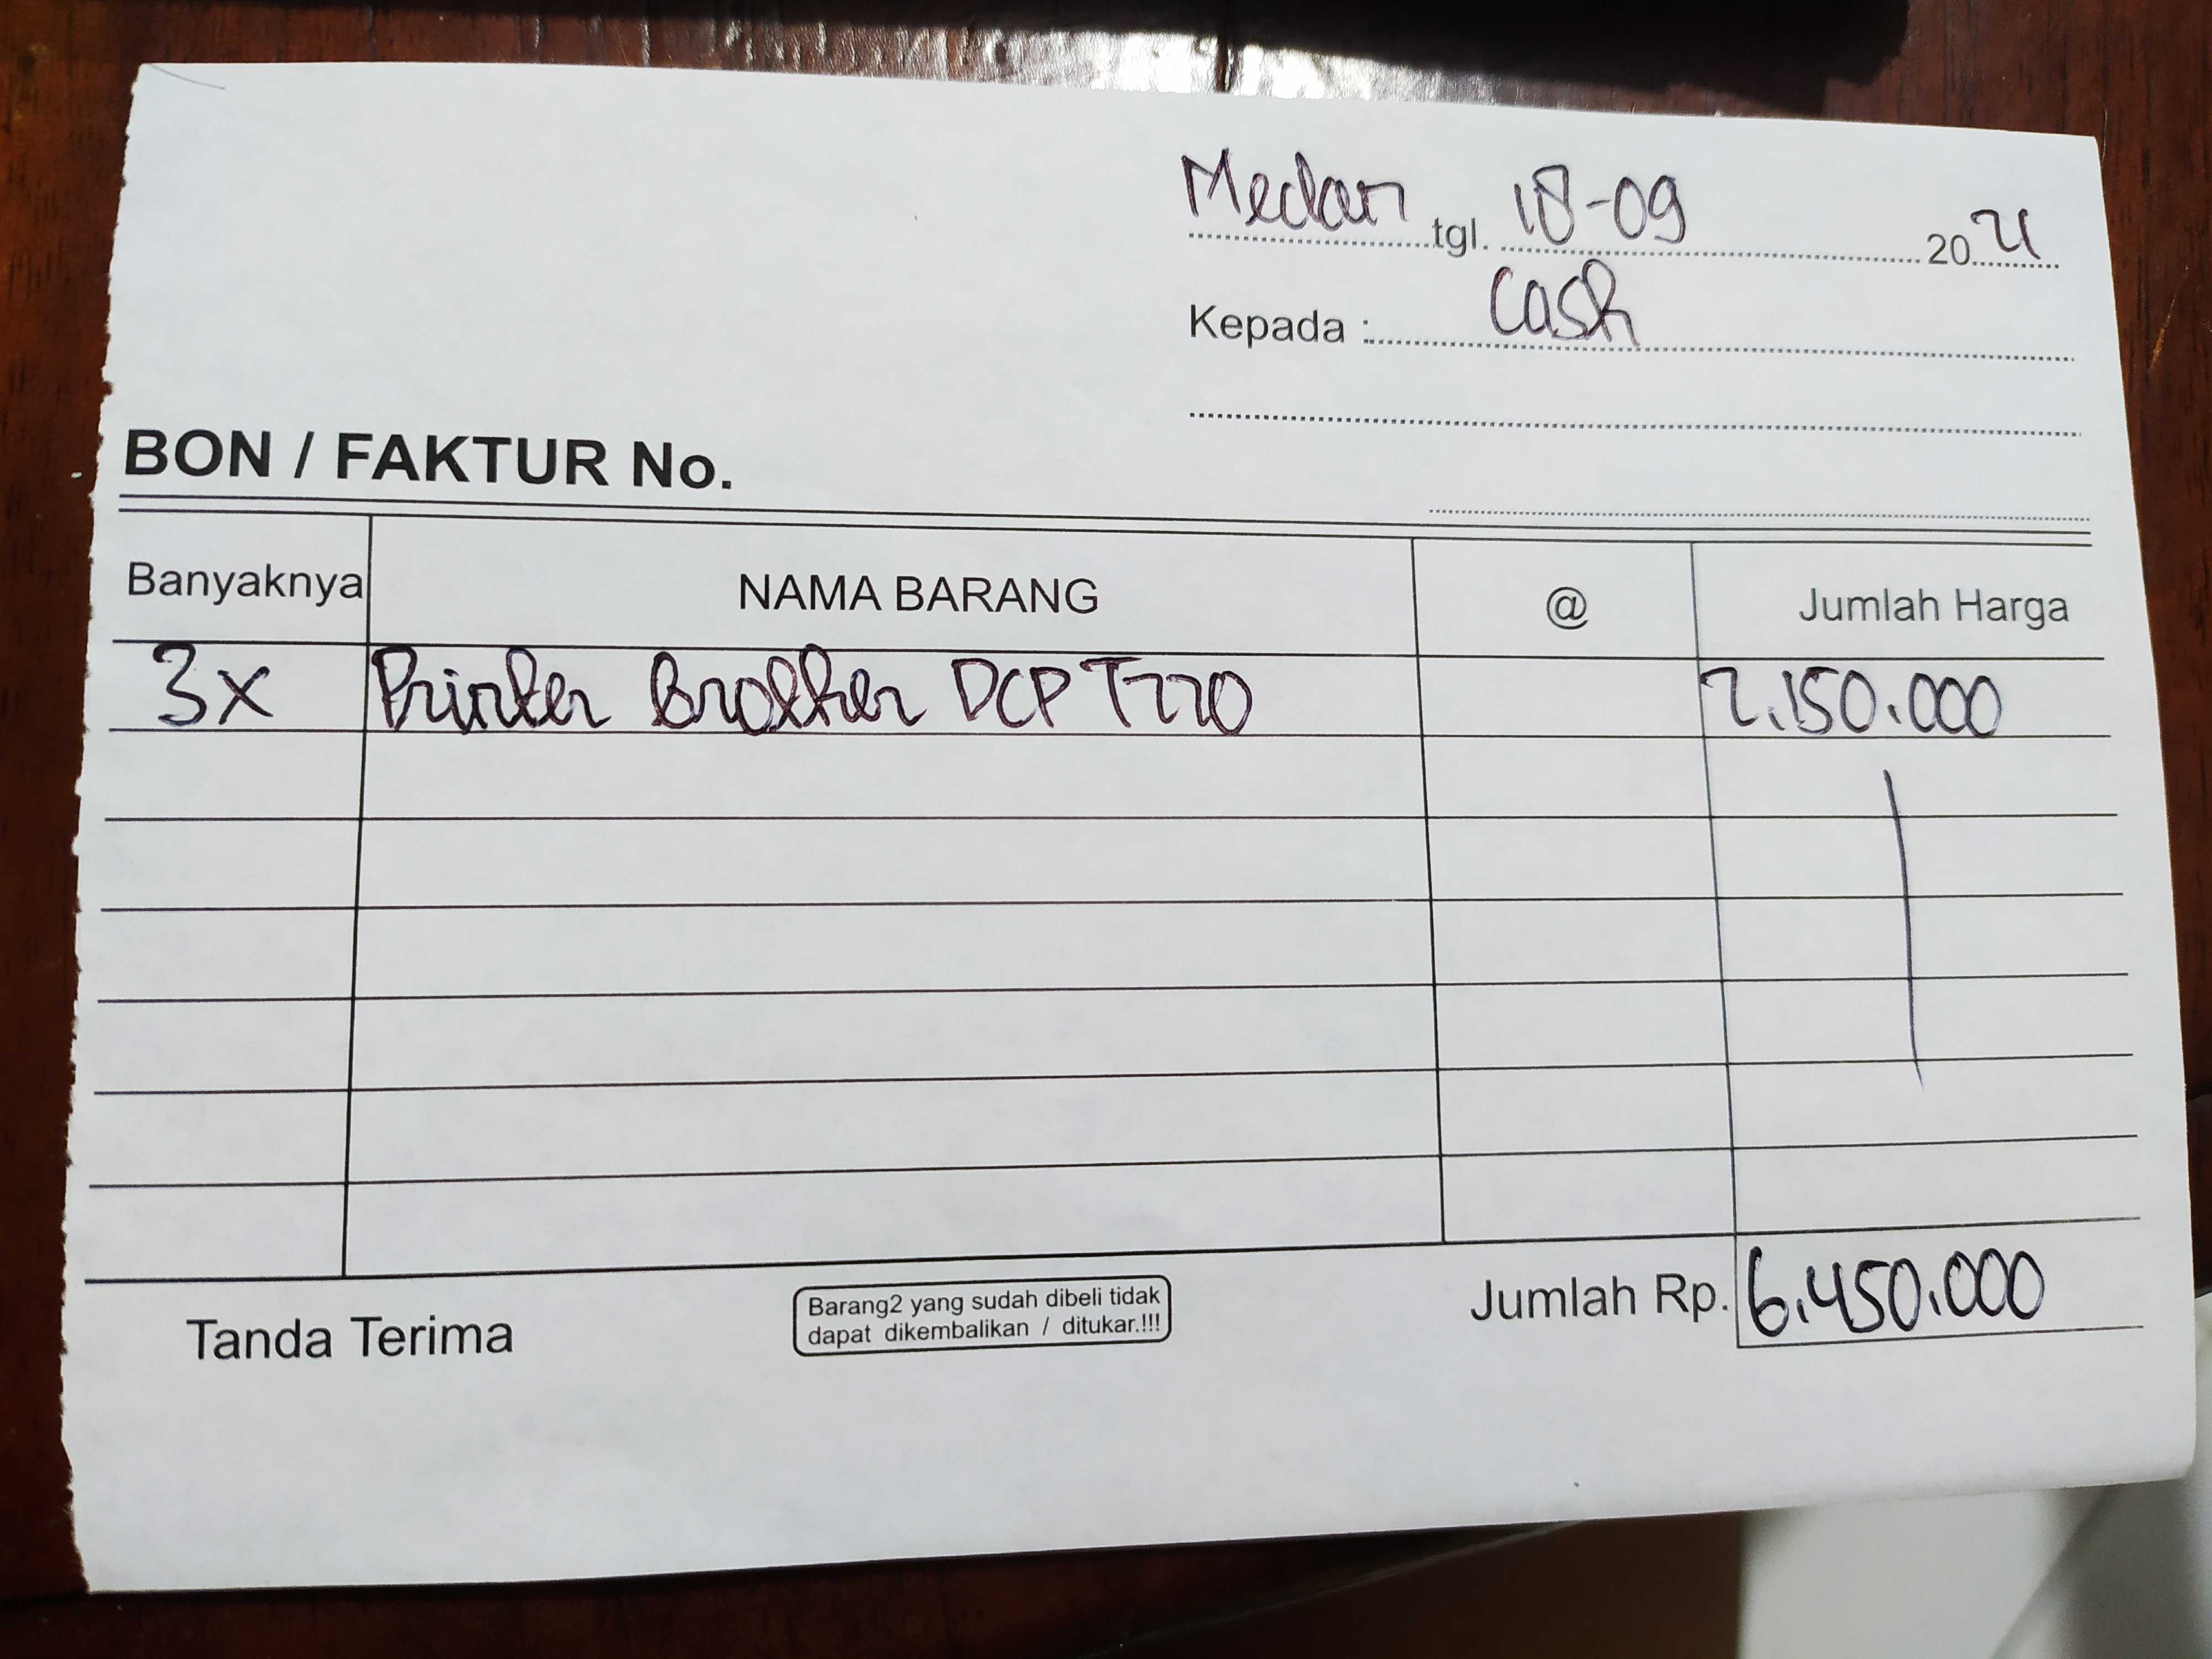 Medan tgl. 18-09 2021
Kepada : Cash
BON / FAKTUR No.
Banyaknya NAMA BARANG @ Jumlah Harga
3x Printer Brother DCP T220 2.150.000
Jumlah Rp. 6.450.000
Tanda Terima
Barang2 yang sudah dibeli tidak
dapat dikembalikan / ditukar.!!!